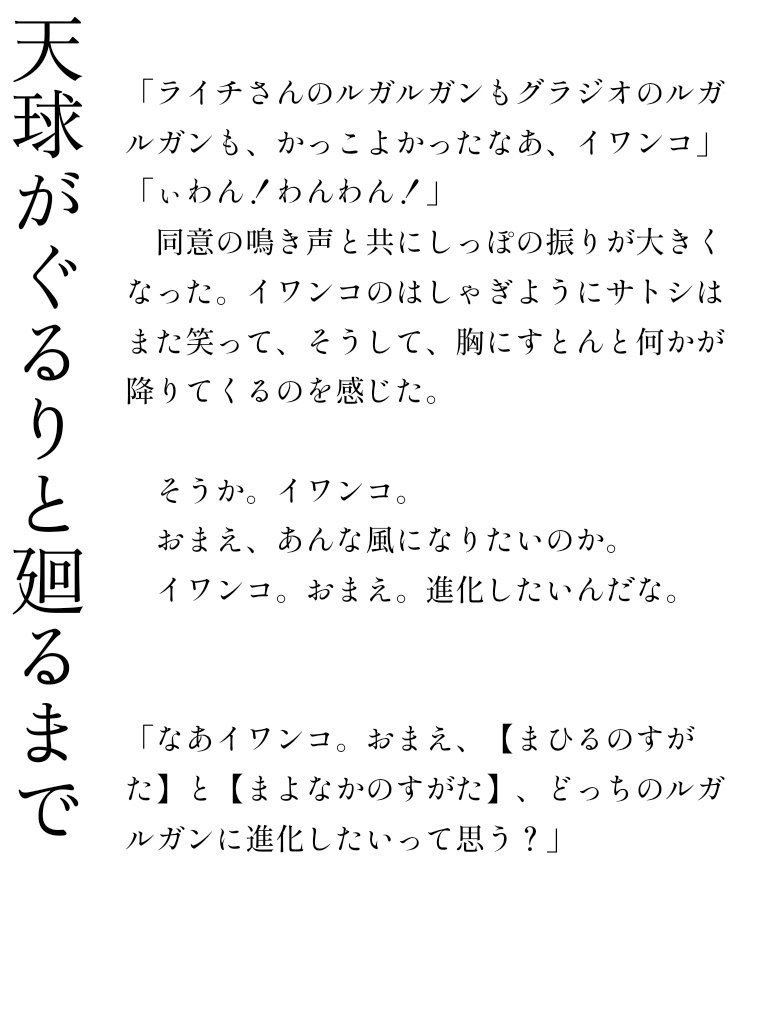 天球がぐるりと廻るまで
「ライチさんのルガルガンもグラジオのルガ
ルガンも、かっこよかったなあ、イワンコ」
「ぃわん！わんわん！」
　同意の鳴き声と共にしっぽの振りが大きく
なった。イワンコのはしゃぎようにサトシは
また笑って、そうして、胸にすとんと何かが
降りてくるのを感じた。
　そうか。イワンコ。
　おまえ、あんな風になりたいのか。
　イワンコ。おまえ。進化したいんだな。
「なあイワンコ。おまえ、【まひるのすが
た】と【まよなかのすがた】、どっちのルガ
ルガンに進化したいって思う？」